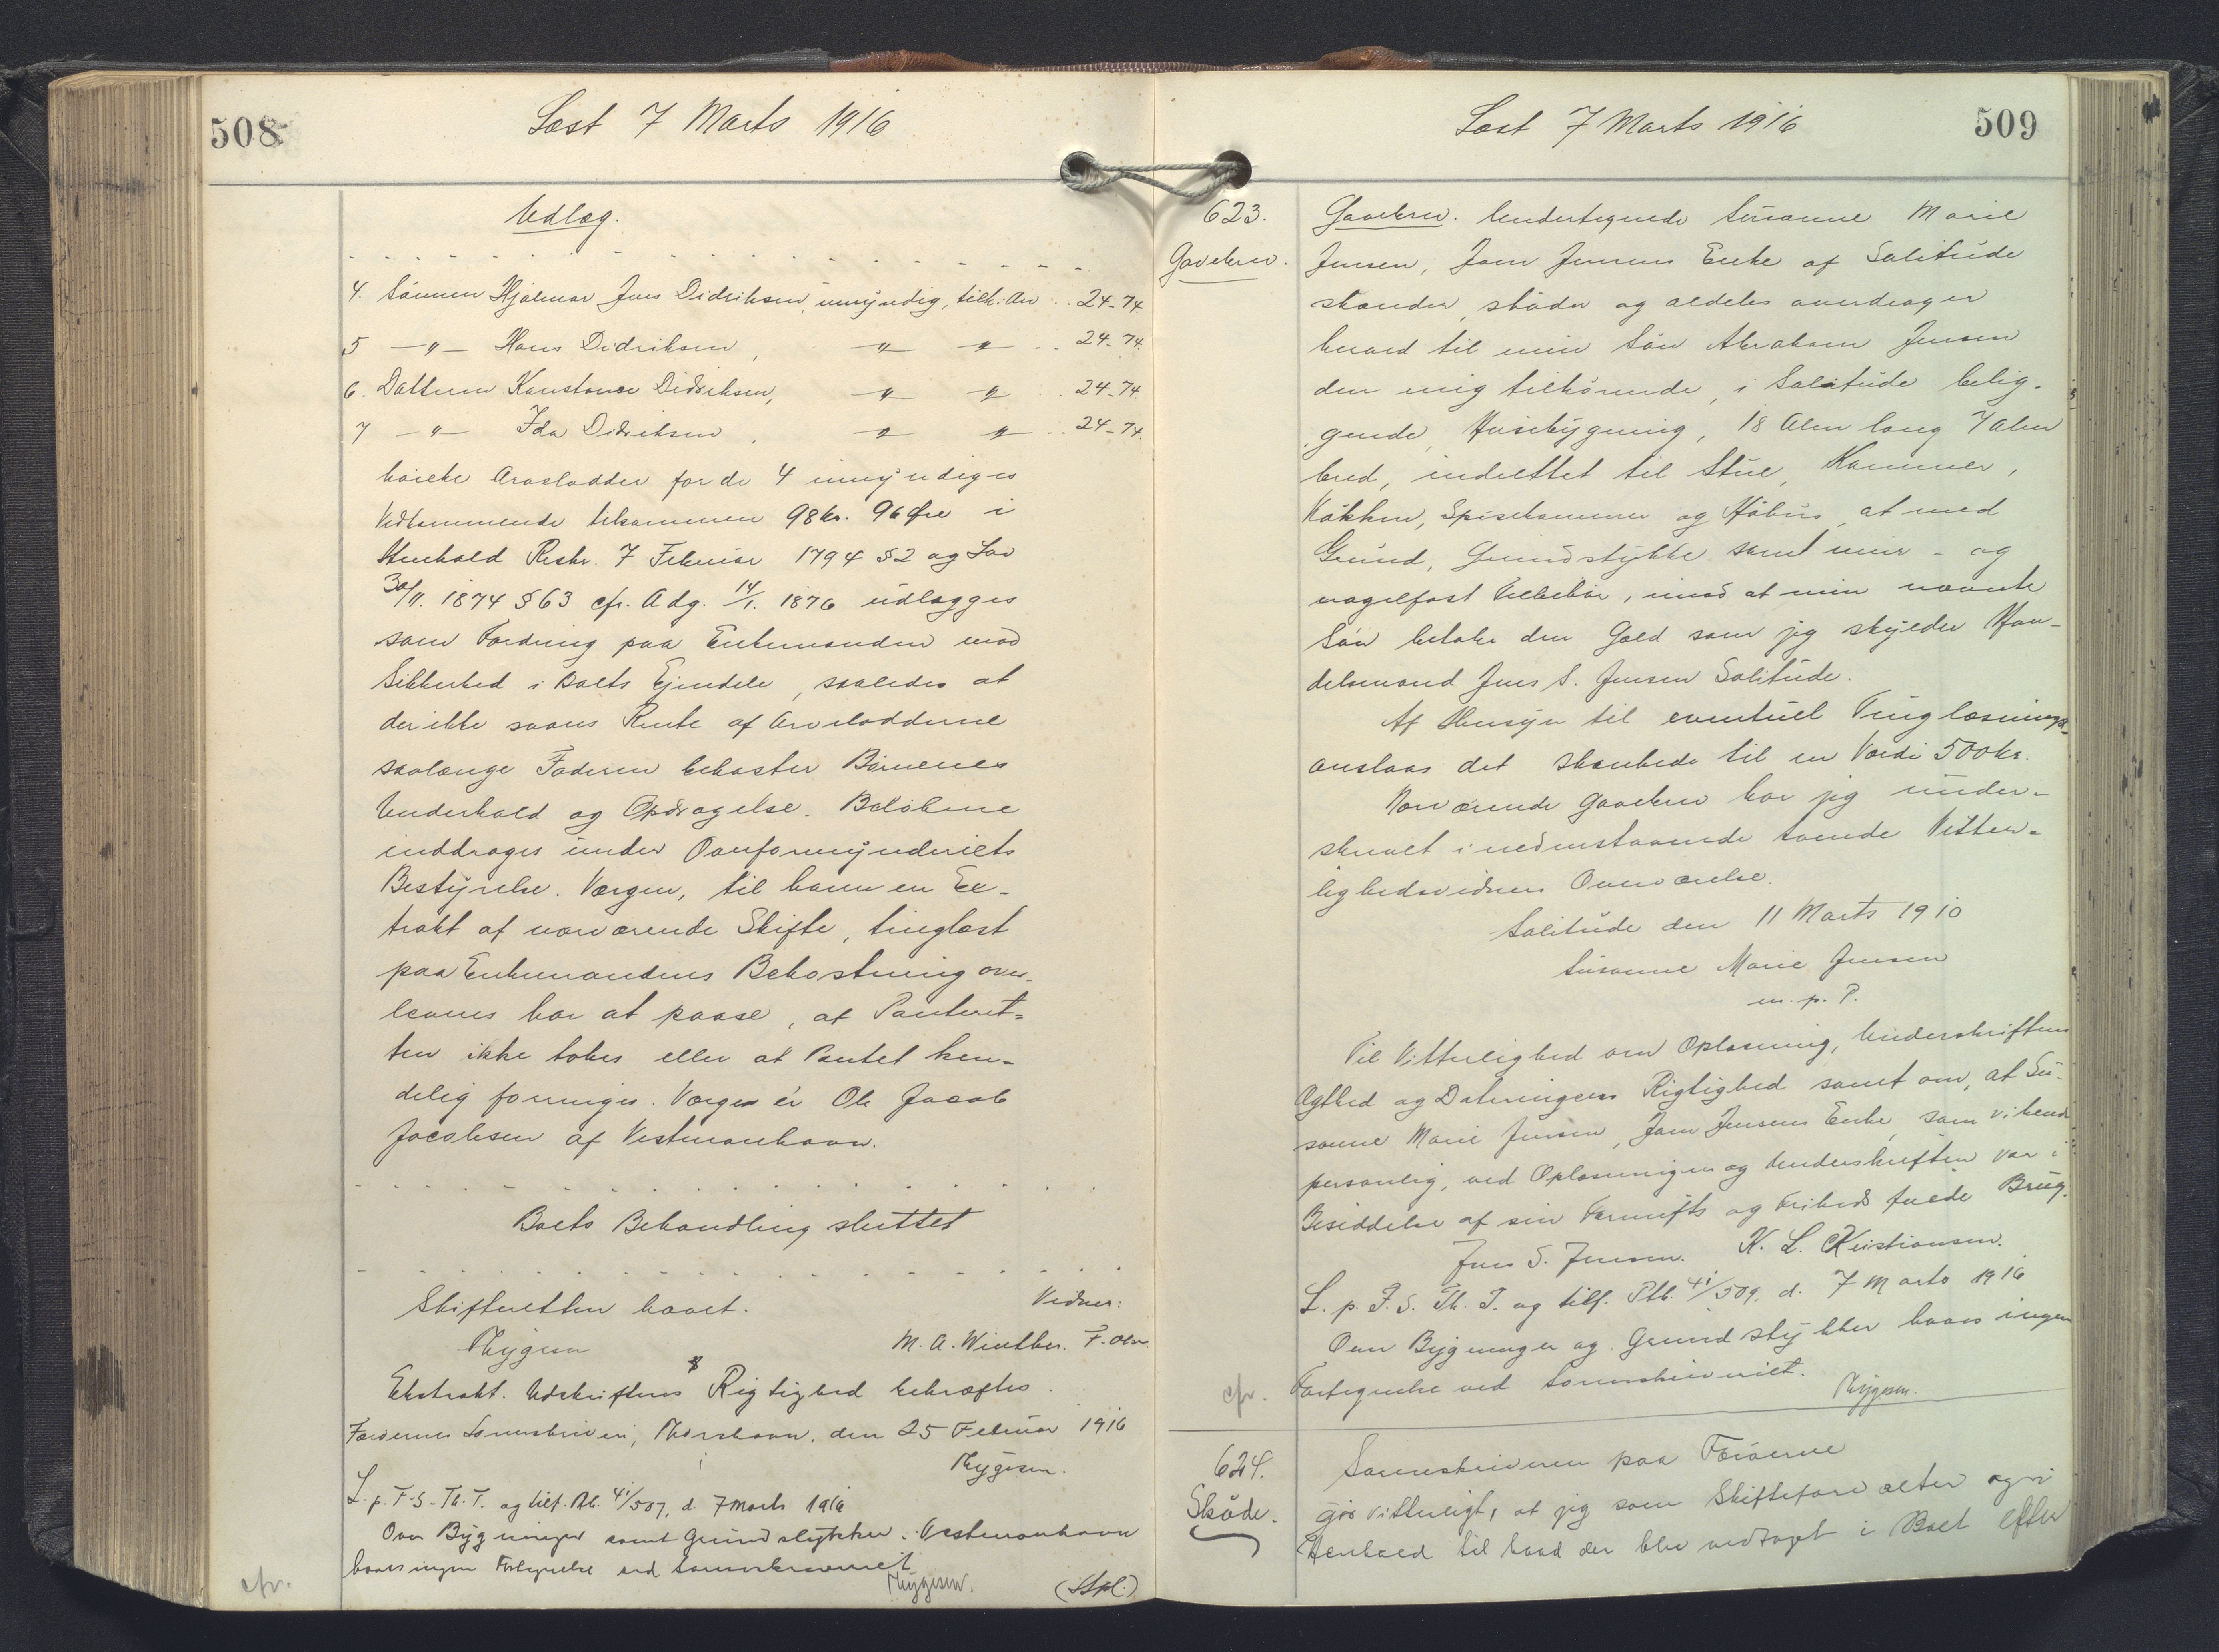 508
Læst 7 Marts 1916
Udlæg.
4. Sønnen Hjalmar Jens Didriksen, umyndig, tilk: Arv .. 24-74.
5 -"- Hans Didriksen, " " .. 24-74.
6. Datteren Konstance Didriksen, " " .. 24-74.
7 -"- Ida Didriksen, " " .. 24-74.
hvilke Arvelodder for de 4 umyndiges
Vedkommende tilsammen 98 kr. 96 Øre i
Henhold Reskr. 7 Februar 1794 §2 og Lov
30/11. 1874 §63 cfr. Adg. 14/1. 1876 udlægges
som Fordring paa Enkemanden mod
Sikkerhed i Boets Ejendele, saaledes at
der ikke svares Rente af Arvelodderne
saalænge Faderen bekoster Børnenes
Underhold og Opdragelse. Beløbene
inddrages under Overformynderiets
Bestyrelse. Værgen, til hvem en Ex-
trakt af nærværende Skifte, tinglæst
paa Enkemandens Bekostning over-
leveres har at paase, at Panteret-
ten ikke tabes eller at Pantet ken-
delig forringes. Værgen er Ole Jacob
Jacobsen af Vestmanhavn.
Boets Behandling sluttet
Skifteretten hævet. Vidner:
Thygesen M. A. Winther. F. Olsen
Ekstrakt. Udskriftens Rigtighed bekræftes.
Færøernes Sorenskriveri, Thorshavn, den 25 Februar 1916
Thygesen.
L. p. F. S. Th. T. og tilf. Ptb. 4i/507, d. 7 Marts 1916
Over Bygninger samt Grundstykker i Vestmanhavn
haves ingen Fortegnelse ved Sorenskriveriet
Thygesen.
(Stpl.)
cfr.
Læst 7 Marts 1916
509
623.
Gavebrev.
Gavebrev. Undertegnede Susanne Marie
Jensen, Joen Jensens Enke af Solitude
skænder, skøder og aldeles overdrager
herved til min Søn Abraham Jensen
den mig tilhørende, i Solitude belig-
gende, Husebygning, 18 Alen lang 7 Alen
bred, indrettet til Stue, Kammer,
Køkken, Spisekammer og Høhus, alt med
Grund, Grundstykke samt mur- og
nagelfast Tilbehør, imod at min nævnte
Søn betaler den Gæld som jeg skylder Han-
delsmand Jens S. Jensen Solitude.
Af Hensyn til eventuel Tinglæsnings
anslaas det skænkede til en Værdi 500 kr.
Nærværende Gavebrev har jeg under-
skrevet i nedenstaaende tvende Vitter-
lighedsvidners Overværelse.
Solitude den 11 Marts 1910
Susanne Marie Jensen
m. p. P.
Til Vitterlighed om Oplæsning, Underskriftens
Ægthed og Dateringens Rigtighed samt om, at Su-
sanne Marie Jensen, Joen Jensens Enke, som vi kende
personlig, ved Oplæsningen og Underskriften var i
Besiddelse af sin Fornufts og Friheds fulde Brug.
Jens S. Jensen. K. L. Kristiansen.
L. p. F. S. Th. T. og tilf. Ptb. 4i/509. d. 7 Marts 1916
Over Bygninger og Grundstykker haves ingen
Fortegnelse ved Sorenskriveriet.
Thygesen.
cfr.
624.
Skøde.
Sorenskriveren paa Færøerne
gør vitterligt, at jeg som Skifteforvalter og i
Henhold til hvad der blev vedtaget i Boet efter